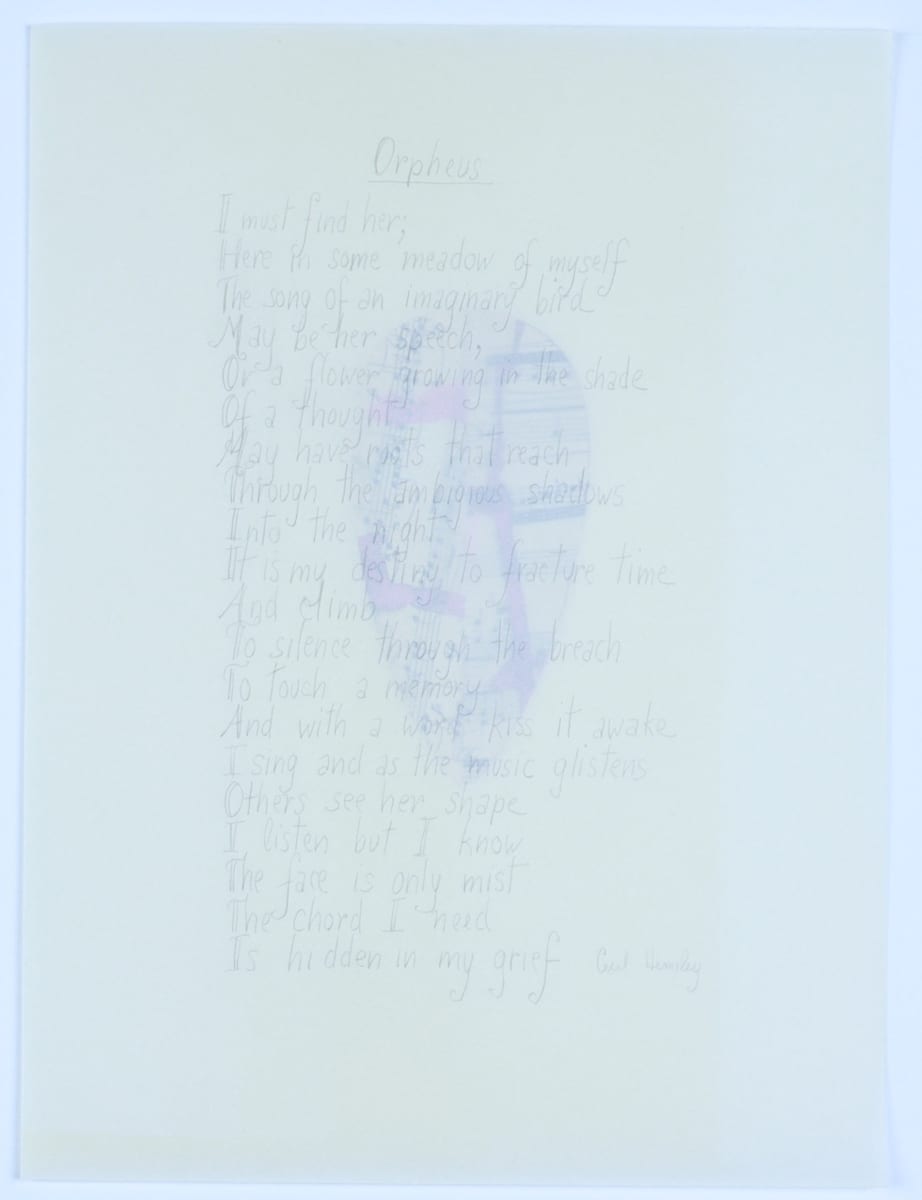 Orpheus
I must find her;
Here in some meadow of myself
The song of an imaginary bird
May be her speech,
Or a flower growing in the shade
Of a thought
May have roots that reach
Through the ambigious shadows
Into the night
It is my destiny to fracture time
And climb
To silence through the breach
To touch a memory
And with a word kiss it awake
I sing and as the music glistens
Others see her shape
I listen but I know
The face is only mist
The chord I need
Is hidden in my grief